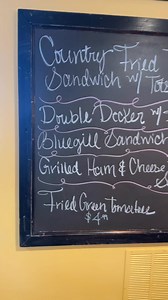 Country Fried
Sandwich w/ Tots
Double Decker w/
Bluegill Sandwich
Grilled Ham & Cheese
Fried Green Tomatoes
$4